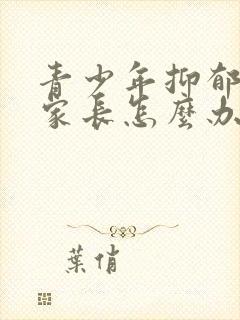 青少年抑郁
家长怎麼办
葉俏